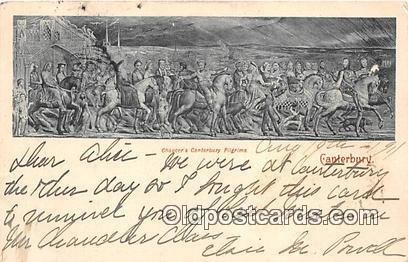 Chaucer's Canterbury Pilgrims.
Canterbury.
Aug
Dear Alice - We were at Canterbury
the other day so I bought this card
to remind you of
Mr Chandler Class
Elsie Powell
OLDPOSTCARDS.COM